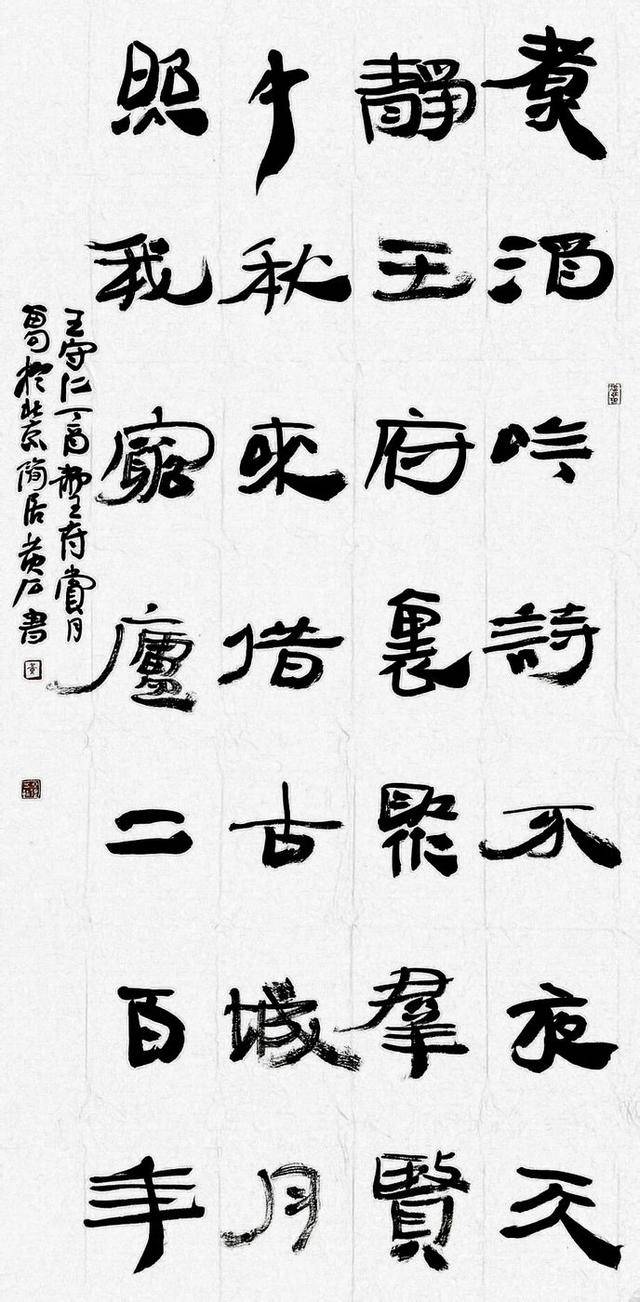 煮酒吟詩不夜天
靜王府裏聚羣賢
千秋來借古城月
照我廬二百年
王守仁丁酉王府賞月
於北京簡居黃石書